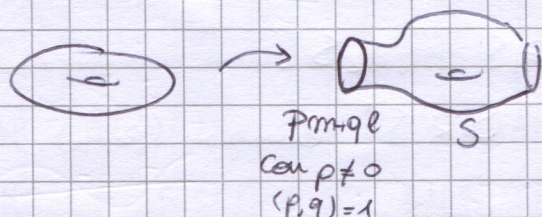 pm+ql
S
con p ≠ 0
(p,q)=1